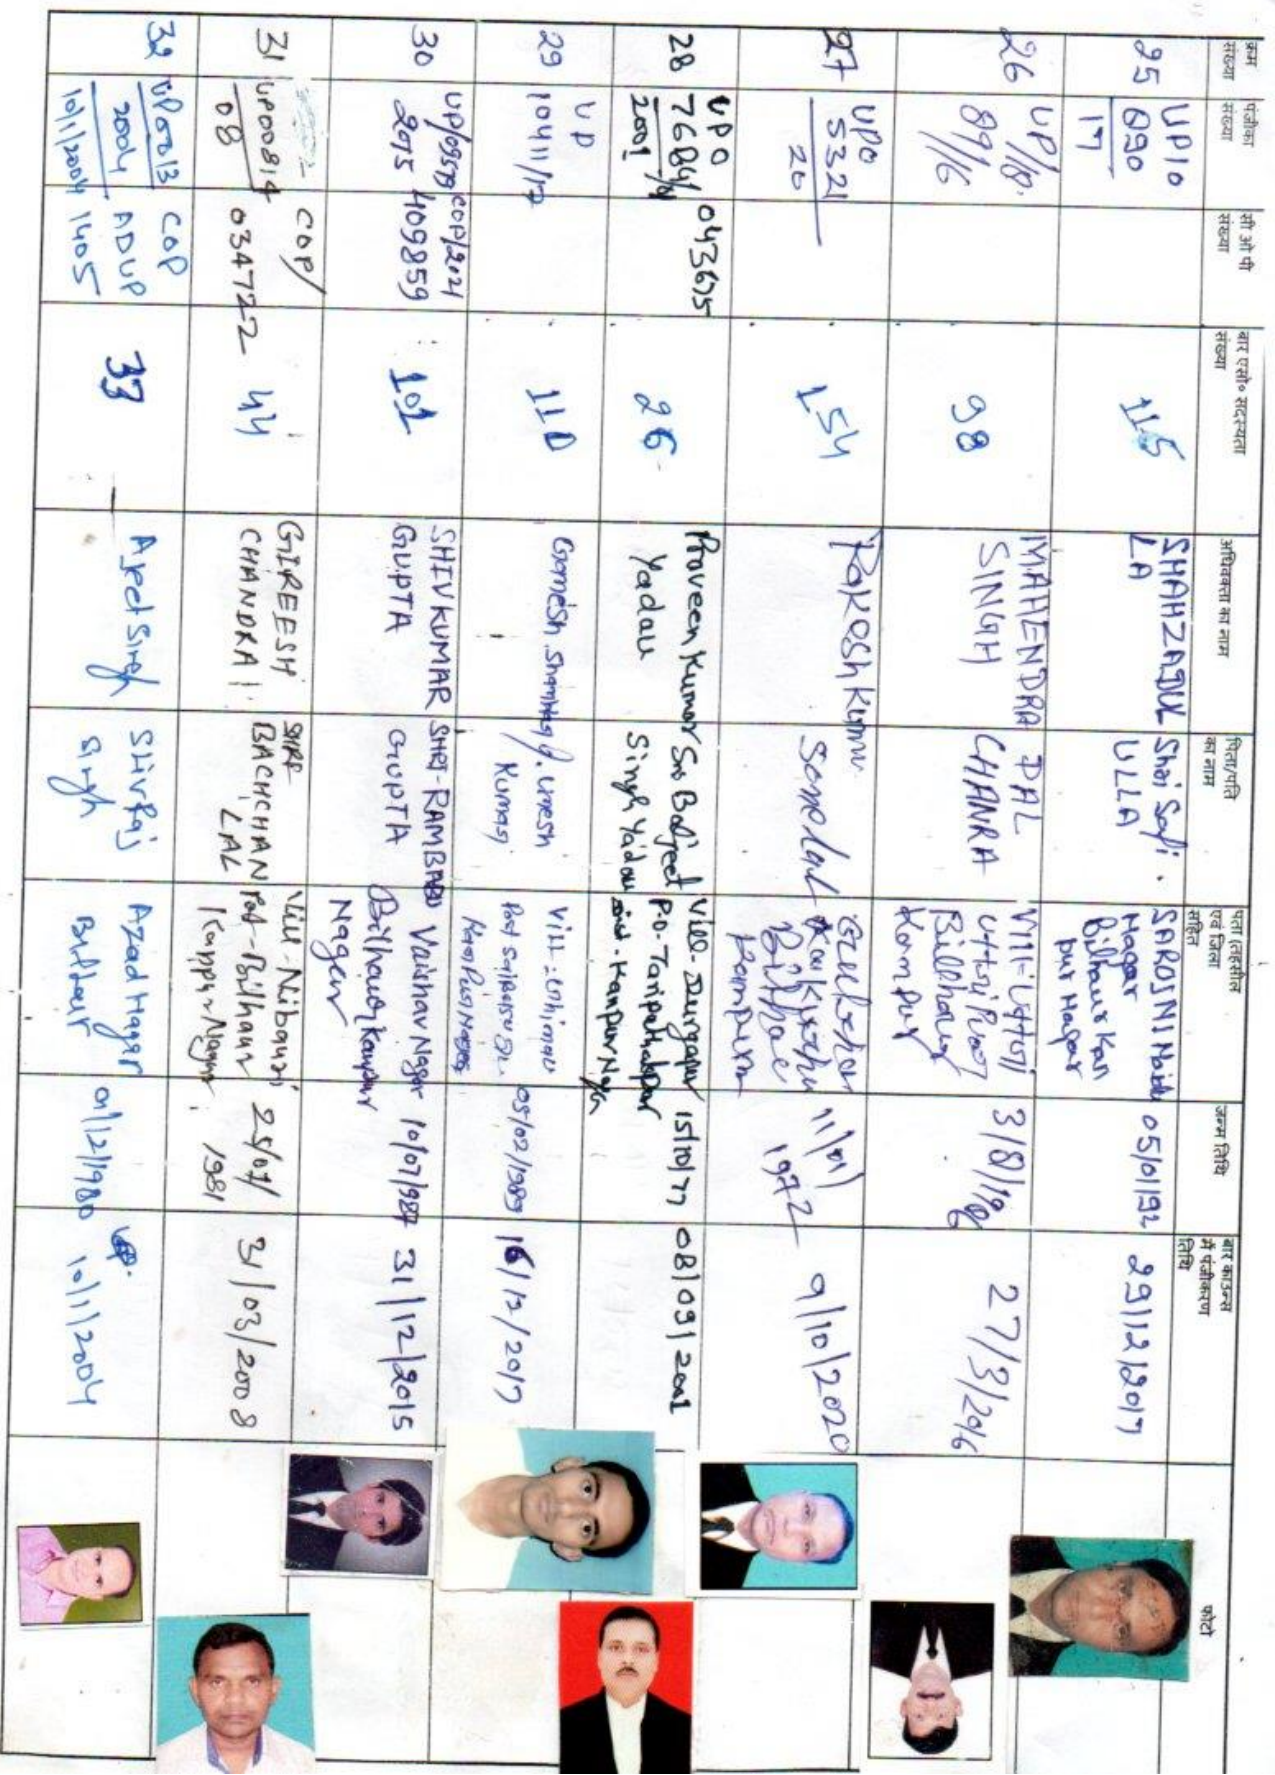 क्रम
संख्या
पंजीकरण
संख्या
सी ओ पी
संख्या
बार एसो० सदस्यता
संख्या
अधिवक्ता का नाम
पिता/पति
का नाम
पता (तहसील
एवं जिला
सहित
जन्म तिथि
बार काउन्स
में पंजीकरण
तिथि
फोटो
25
UP10
17
115
SHAHZADUL
LA
Shri Safi
ULLA
SAROJNI Naidu
Nagar
Bilhaur Kan
pur Nagar
05/01/92
29/12/2017
26
UP/18
89/16
98
MAHENDRA
SINGH
PAL
CHANRA
Bilhaur
Kanpur
3/8/19
27/3/2016
27
UPO
5321
20
154
Rakesh Kumar
11/01/
1972
9/10/2020
28
UPO
2001
043675
26
Praveen Kumar
Yadav
S/o Baljeet
Singh Yadav
Vill-Durgapur
Kanpur Nagar
15/10/77
08/09/2001
29
UP
10411/17
110
Ganesh Sharma
Umesh
Kumar
05/02/1989
16/12/2017
30
2015
COP/2021
409859
101
SHIV KUMAR
GUPTA
SHRI-RAMBABU
GUPTA
Vaishav Nagar
Bilhaur Kanpur
Nagar
10/07/1987
31/12/2015
31
UP00814
08
COP/
034722
44
GIREESH
CHANDRA
BACHCHAN
LAL
Vill-Nibauri
Post-Bilhaur
Kanpur Nagar
25/07/
1981
31/03/2008
32
UP00013
2004
10/1/2004
COP
ADUP
1405
33
Ajeet Singh
Shiv Raj
Singh
Azad Nagar
Bilhaur
01/12/1980
10/1/2004